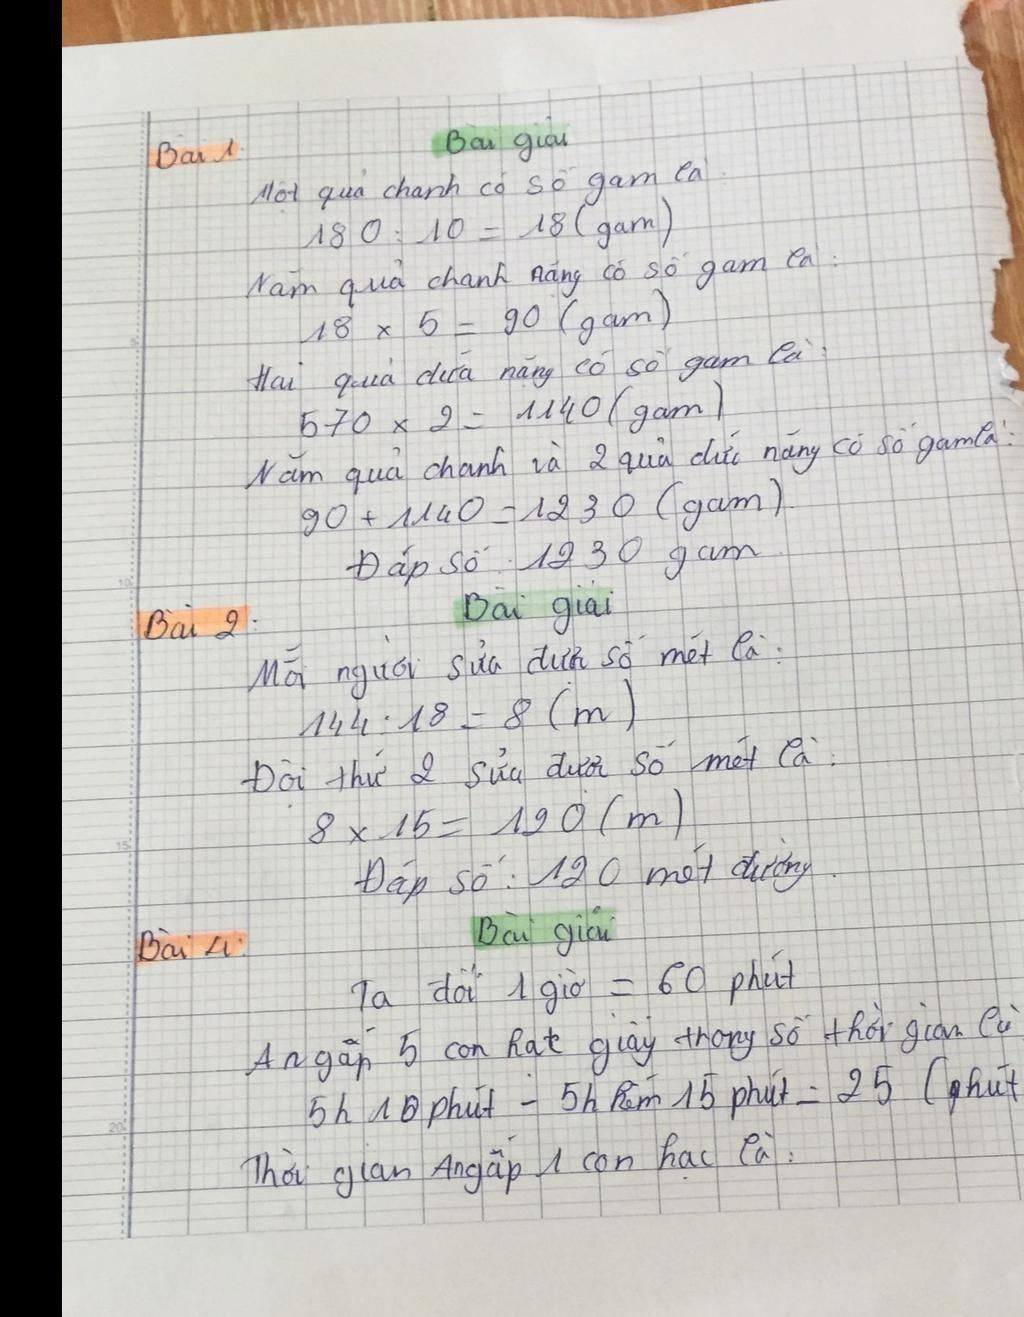 Bài 1
Bài giải
Một quả chanh có số gam là:
180 : 10 = 18 (gam)
Năm quả chanh nặng có số gam là:
18 x 5 = 90 (gam)
Hai quả dứa nặng có số gam là:
570 x 2 = 1140 (gam)
Năm quả chanh và 2 quả dứa nặng có số gam là:
90 + 1140 = 1230 (gam)
Đáp số: 1230 gam
Bài 2:
Bài giải
Mỗi người sửa được số mét là:
144 : 18 = 8 (m)
Đội thứ 2 sửa được số mét là:
8 x 15 = 120 (m)
Đáp số: 120 mét đường.
Bài 4:
Bài giải
Ta đổi 1 giờ = 60 phút
An gấp 5 con hạt giấy trong số thời gian là
5h 10 phút - 5h kém 15 phút = 25 (phút
Thời gian An gấp 1 con hạc là:
5
10
15
20